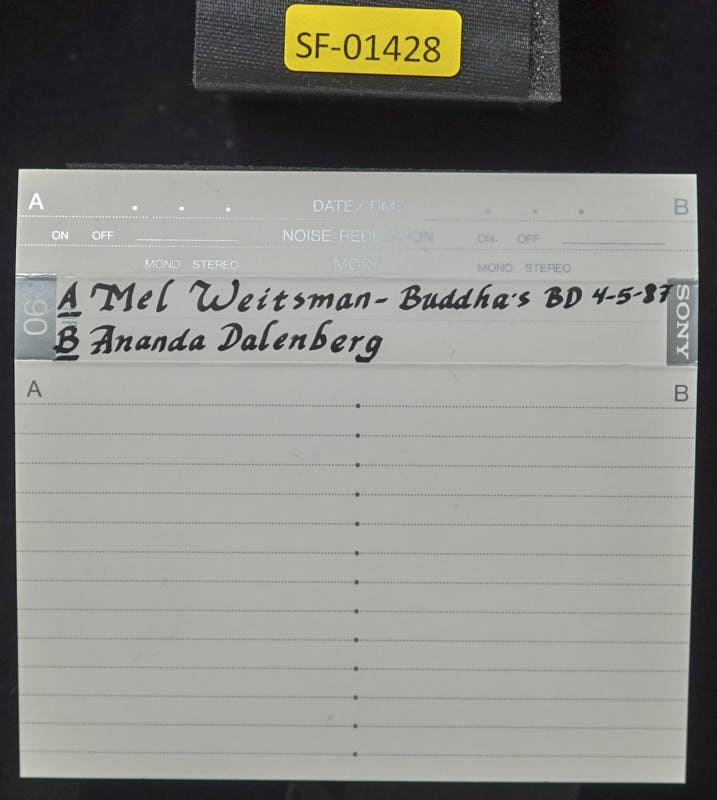 SF-01428
A DATE/TIME B
ON OFF NOISE REDUCTION ON OFF
MONO STEREO MODE MONO STEREO
90 A Mel Weitsman - Buddha's BD 4-5-87 SONY
B Ananda Dalenberg
A B